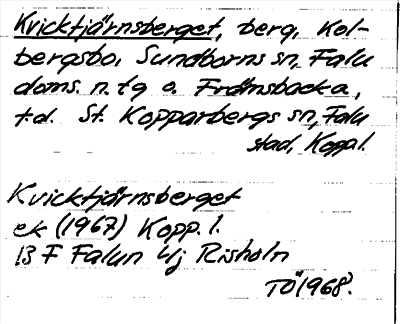 Kvicktjärnsberget, berg, Kol-
bergsbo, Sundborns sn, Falu
doms. n. tg o. Främsbacka,
t.d. St. Kopparbergs sn, Falu
stad, Koppl.
Kvicktjärnsberget
ek (1967) Kopp. l.
13 F Falun 4j Risholn
TÖ 1968.